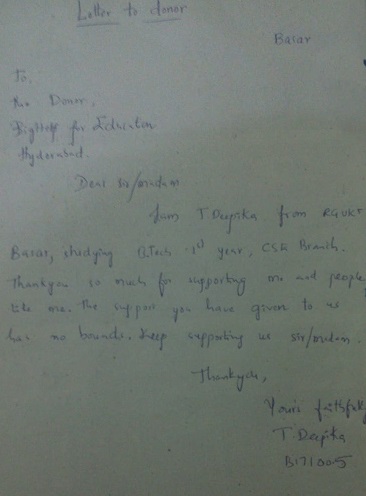 Letter to donor
Basar
To,
The Donor,
for Education
Hyderabad.
Dear sir/madam
Iam T Deepika from RGUKT
Basar, studying B.Tech 1st year, CSE Branch.
Thankyou so much for supporting me and people
like me. The support you have given to us
has no bounds. Keep supporting us sir/madam.
Thankyou,
Yours faithfully
T. Deepika
B171005